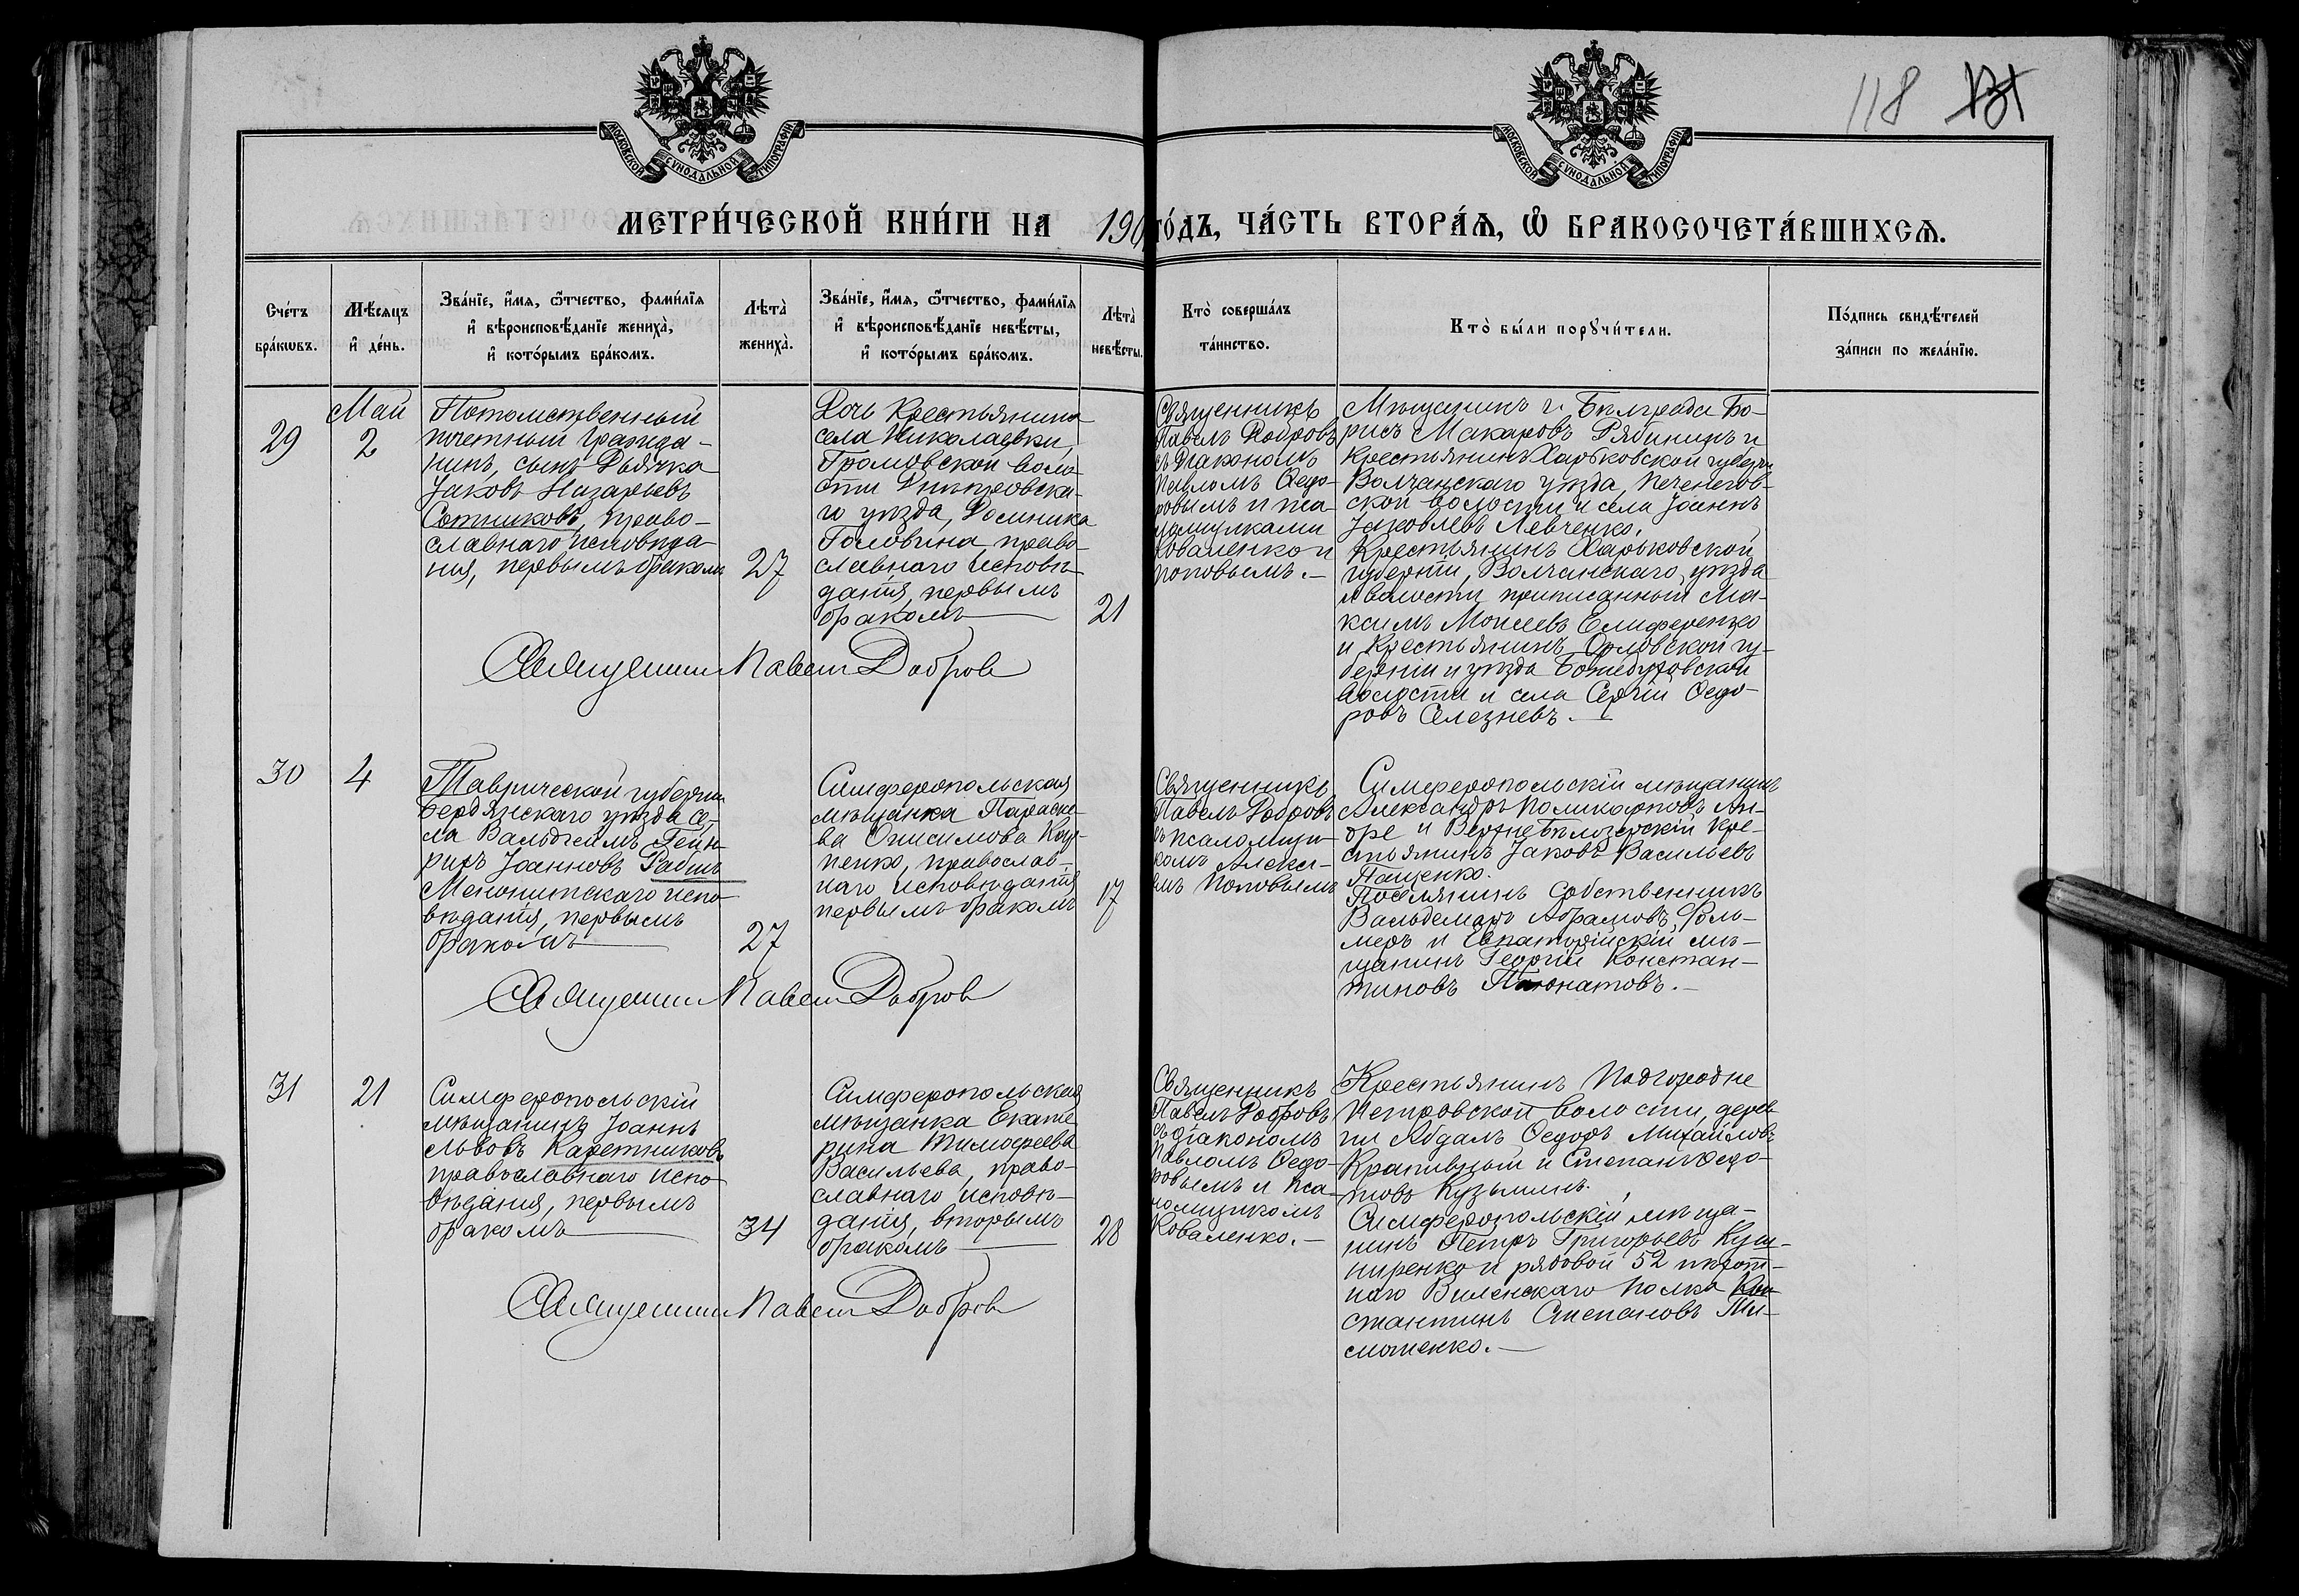 118
МОСКОВСКОЙ СѴНОДАЛЬНОЙ ТИПОГРАФІИ
МОСКОВСКОЙ СѴНОДАЛЬНОЙ ТИПОГРАФІИ
МЕТРИ́ЧЕСКОЙ КНИ́ГИ НА 190 ГО́ДЪ, ЧА́СТЬ ВТОРА́Ѧ, Ѽ БРАКОСОЧЕТА́ВШИХСѦ.
Сче́тъ
бра́кѡвъ.
Мѣ́сѧцъ
и҆ де́нь.
Зва́нїе, и҆́мѧ, ѻ҆́тчество, фами́лїѧ
и҆ вѣроисповѣ́данїе жениха̀,
и҆ кото́рымъ бра́комъ.
Лѣта̀
жениха̀.
Зва́нїе, и҆́мѧ, ѻ҆́тчество, фами́лїѧ
и҆ вѣроисповѣ́данїе невѣ́сты,
и҆ кото́рымъ бра́комъ.
Лѣта̀
невѣ́сты.
Кто̀ соверша́лъ
та́инство.
Кто̀ бы́ли порꙋчи́тели.
По́дпись свидѣ́телей
за́писи по жела́нїю.
29
Май
2
Потомственный
почетный гражда-
нинъ, сынъ Дьячка
Іаковъ Назарьевъ
Сотниковъ, право-
славнаго исповѣда-
нія, первымъ бракомъ
27
Дочь Крестьянина
села Николаевки,
Громовской воло-
сти Днѣпровска-
го уѣзда, Домника
Головина, право-
славнаго исповѣ-
данія, первымъ
бракомъ
21
Священникъ
Павелъ Добровъ
съ Діакономъ
Павломъ Ѳедо-
ровымъ и пса-
ломщиками
Коваленко и
Поповымъ.
Мѣщанинъ г. Бѣлграда Бо-
рисъ Макаровъ Рябининъ и
Крестьянинъ Харьковской губерніи
Волчанскаго уѣзда, Печенегов-
ской волости и села Іоаннъ
Яковлевъ Левченко,
Крестьянинъ Харьковской
губерніи, Волчанскаго уѣзда
и волости приписанный Ма-
ксимъ Моисеевъ Елиференко
и Крестьянинъ Орловской гу-
берніи и уѣзда Богдановской
волости и села Сергій Ѳедо-
ровъ Селезневъ.
Священникъ Павелъ Добровъ
30
4
Таврической губерніи
Бердянскаго уѣзда се-
ла Вальдгеймъ Гейн-
рихъ Іоанновъ Рабшъ
Менонитскаго испо-
вѣданія, первымъ
бракомъ
27
Симферопольская
мѣщанка Параске-
ва Онисимова Кар-
пенко, православ-
наго исповѣданія
первымъ бракомъ
17
Священникъ
Павелъ Добровъ
съ псаломщи-
комъ Алексѣ-
емъ Поповымъ
Симферопольскій мѣщанинъ
Александръ Поликарповъ Ан-
дре и Верхнебѣлозерскій Кре-
стьянинъ Іаковъ Васильевъ
Пащенко.
Поселянинъ собственникъ
Вальдемаръ Абрамовъ Фоль-
меръ и Евпаторійскій мѣ-
щанинъ Георгій Констан-
тиновъ Панонатовъ.
Священникъ Павелъ Добровъ
31
21
Симферопольскій
мѣщанинъ Іоаннъ
Львовъ Каретниковъ
православнаго испо-
вѣданія, первымъ
бракомъ
34
Симферопольская
мѣщанка Екате-
рина Тимофеева
Васильева, право-
славнаго исповѣ-
данія, вторымъ
бракомъ
28
Священникъ
Павелъ Добровъ
съ діакономъ
Павломъ Ѳедо-
ровымъ и пса-
ломщикомъ
Коваленко.
Крестьянинъ Подгородне
Петровской волости, дерев-
ни Абдалъ Ѳедоръ Михайловъ
Крапивный и Степанъ Ѳедо-
товъ Кузьминъ.
Симферопольскій мѣща-
нинъ Петръ Григорьевъ Куш-
ниренко и рядовой 52 пѣхот-
наго Виленскаго полка Кон-
стантинъ Степановъ Ти-
мошенко.
Священникъ Павелъ Добровъ